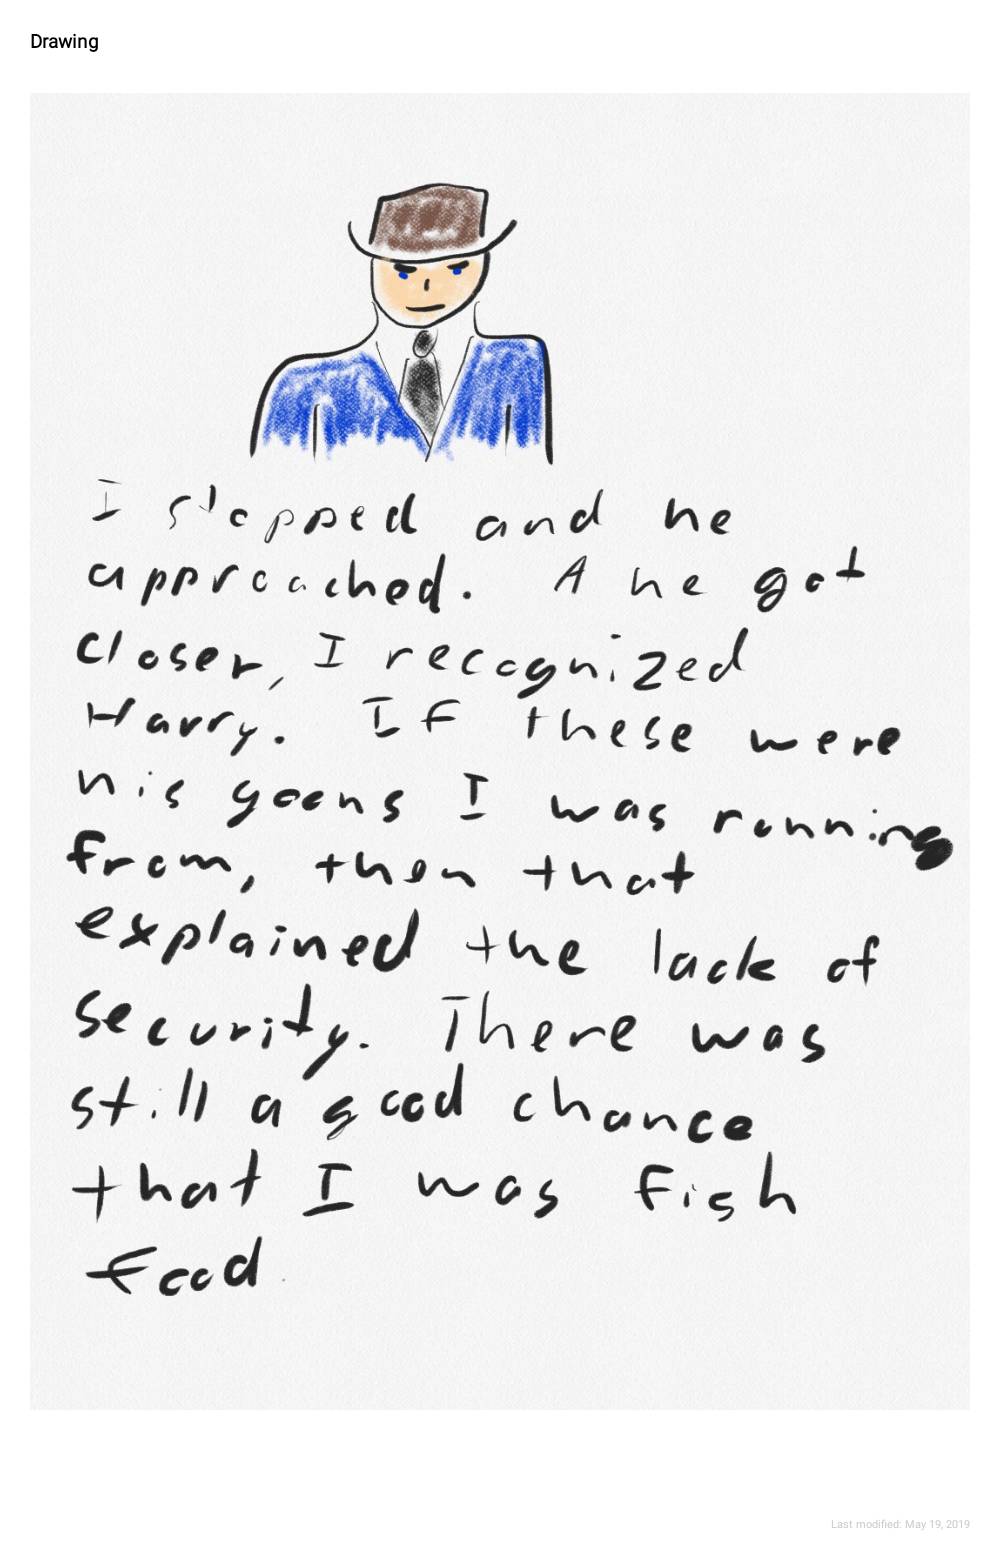 Drawing
I stopped and he
approached. A he got
closer, I recognized
Harry. If these were
his goons I was running
from, then that
explained the lack of
security. There was
still a good chance
that I was fish
food.
Last modified: May 19, 2019